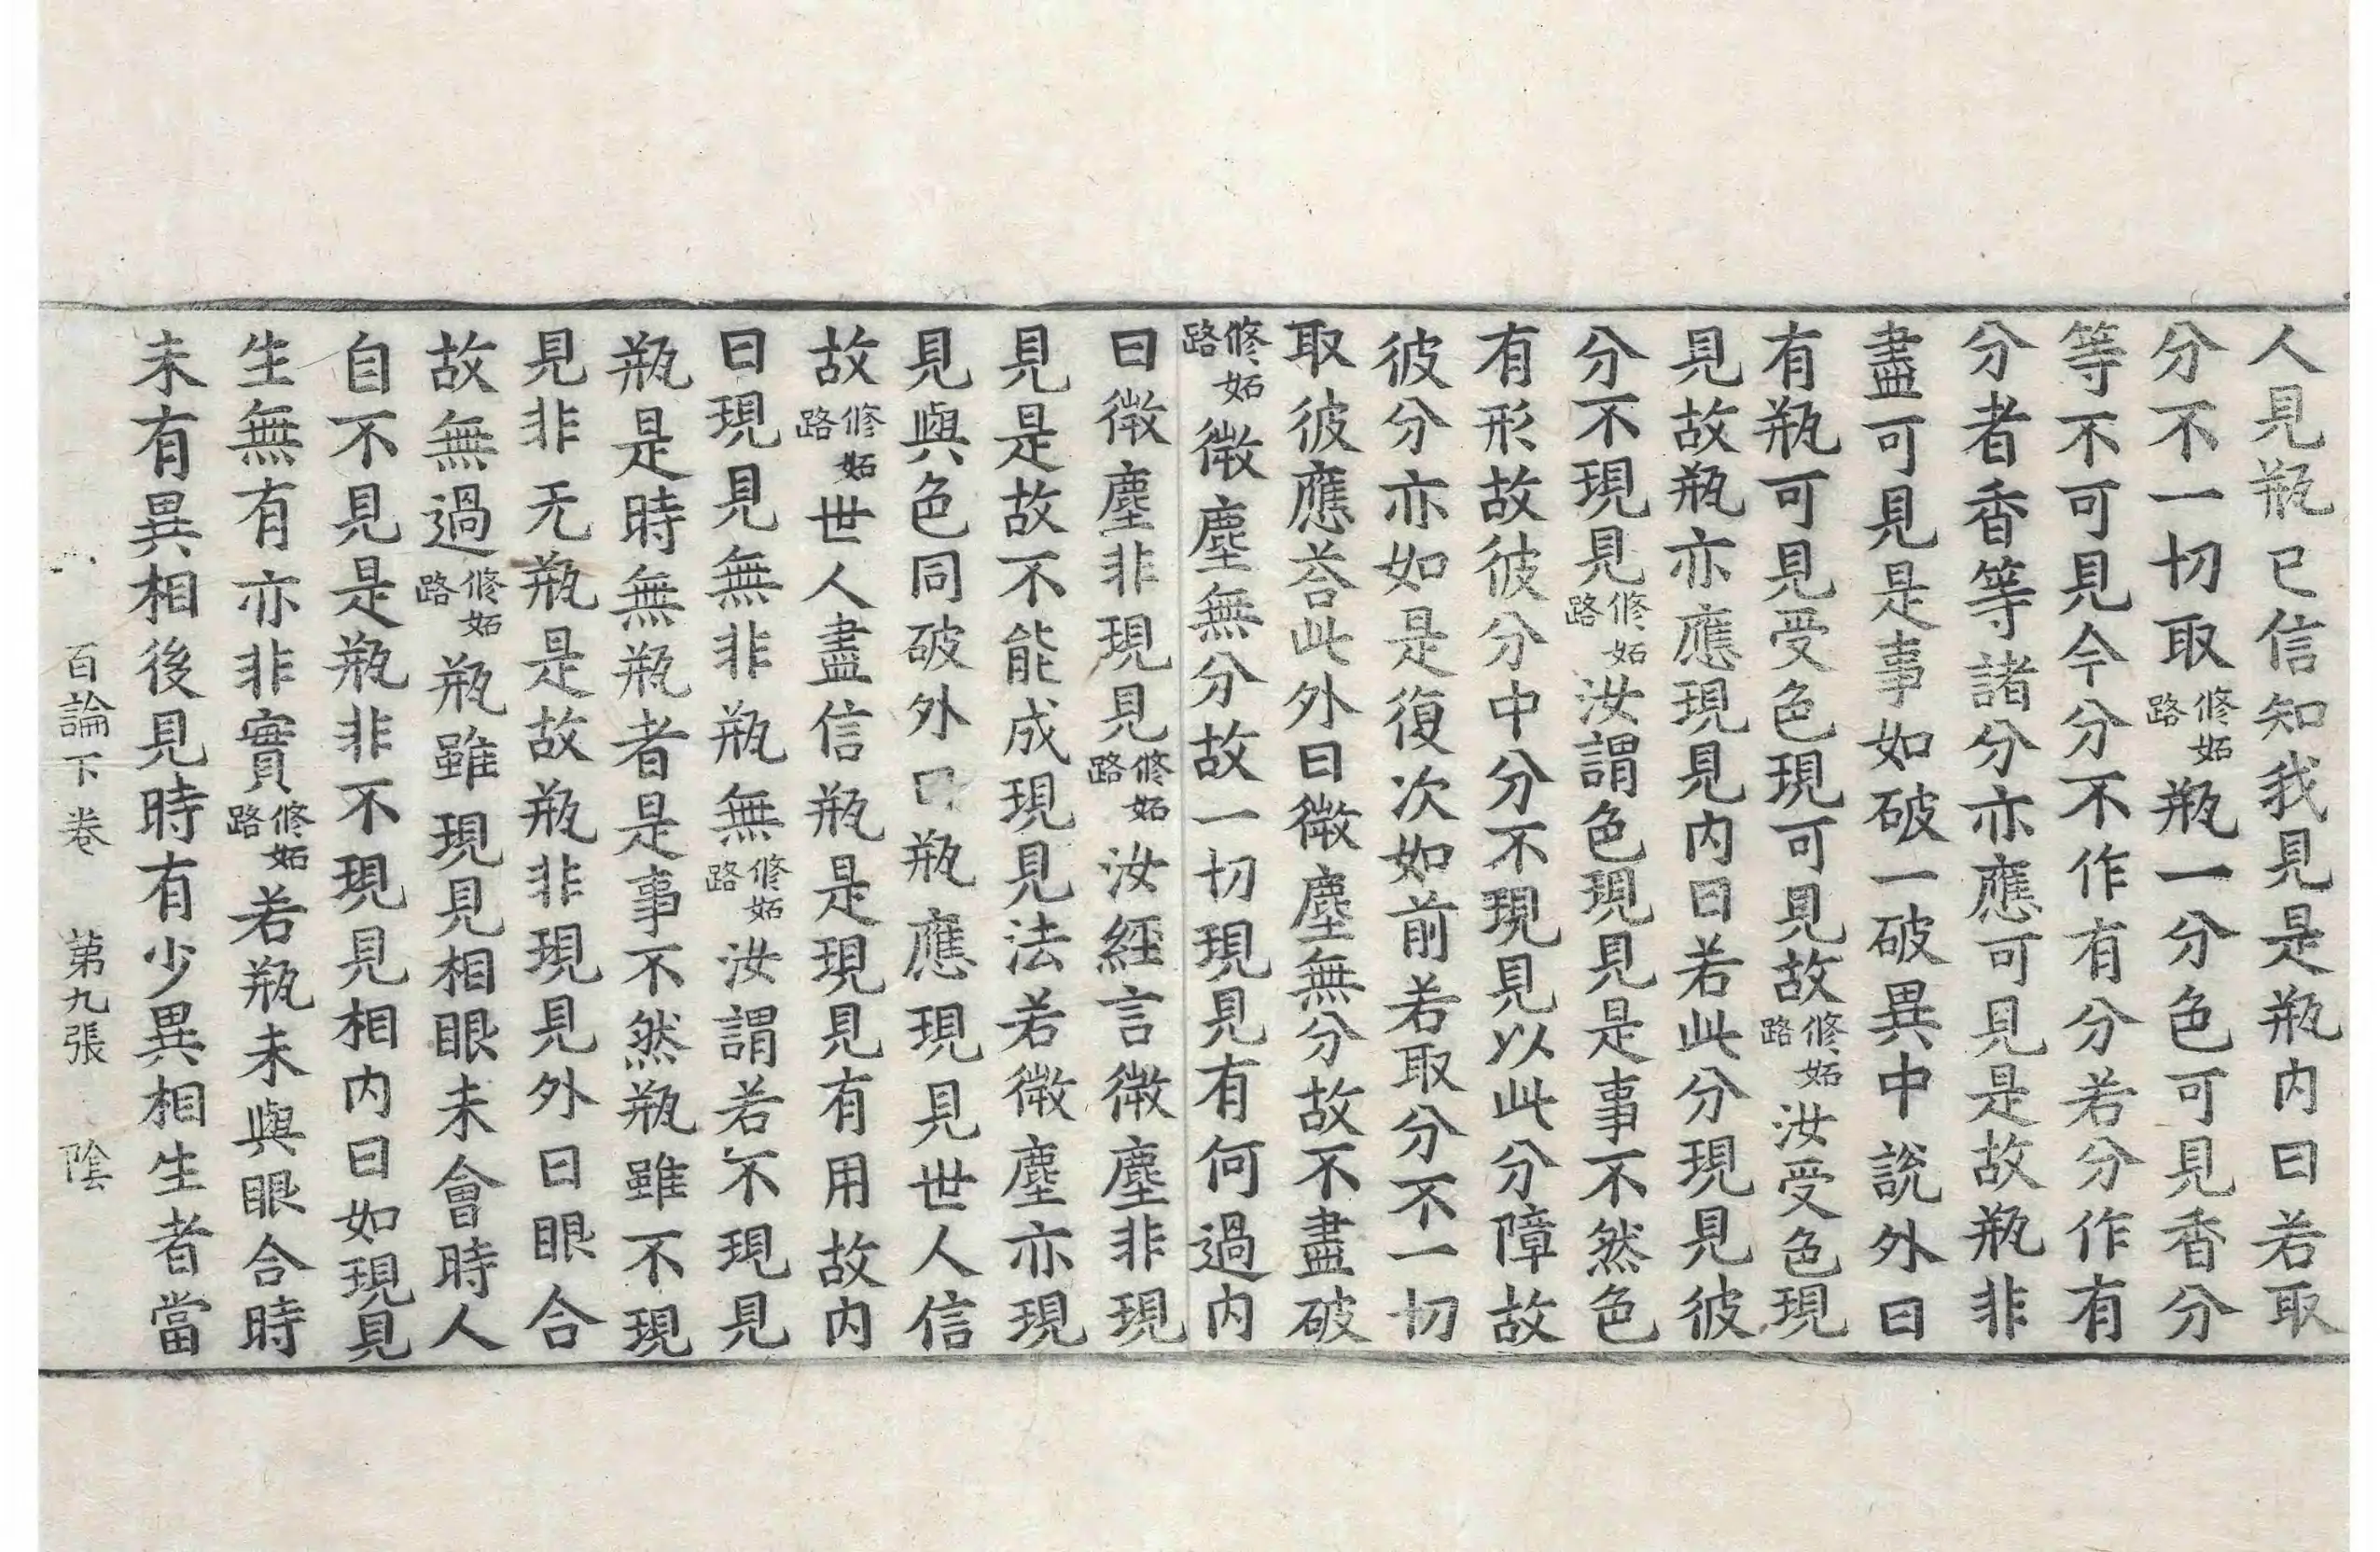 人見瓶已信知我見是瓶内曰若取
分不一切取修妬路瓶一分色可見香分
等不可見今分不作有分若分作有
分者香等諸分亦應可見是故瓶非
盡可見是事如破一破異中說外曰
有瓶可見受色現可見故修妬路汝受色現
見故瓶亦應現見内曰若此分現見彼
分不現見修妬路汝謂色現見是事不然色
有形故彼分中分不現見以此分障故
彼分亦如是復次如前若取分不一切
取彼應荅此外曰微塵無分故不盡破
修妬路微塵無分故一切現見有何過内
曰微塵非現見修妬路汝經言微塵非現
見是故不能成現見法若微塵亦現
見與色同破外曰瓶應現見世人信
故修妬路世人盡信瓶是現見有用故内
曰現見無非瓶無修妬路汝謂若不現見
瓶是時無瓶者是事不然瓶雖不現
見非无瓶是故瓶非現見外曰眼合
故無過修妬路瓶雖現見相眼未會時人
自不見是瓶非不現見相内曰如現見
生無有亦非實修妬路若瓶未與眼合時
未有異相後見時有少異相生者當
百論下卷 第九張 陰